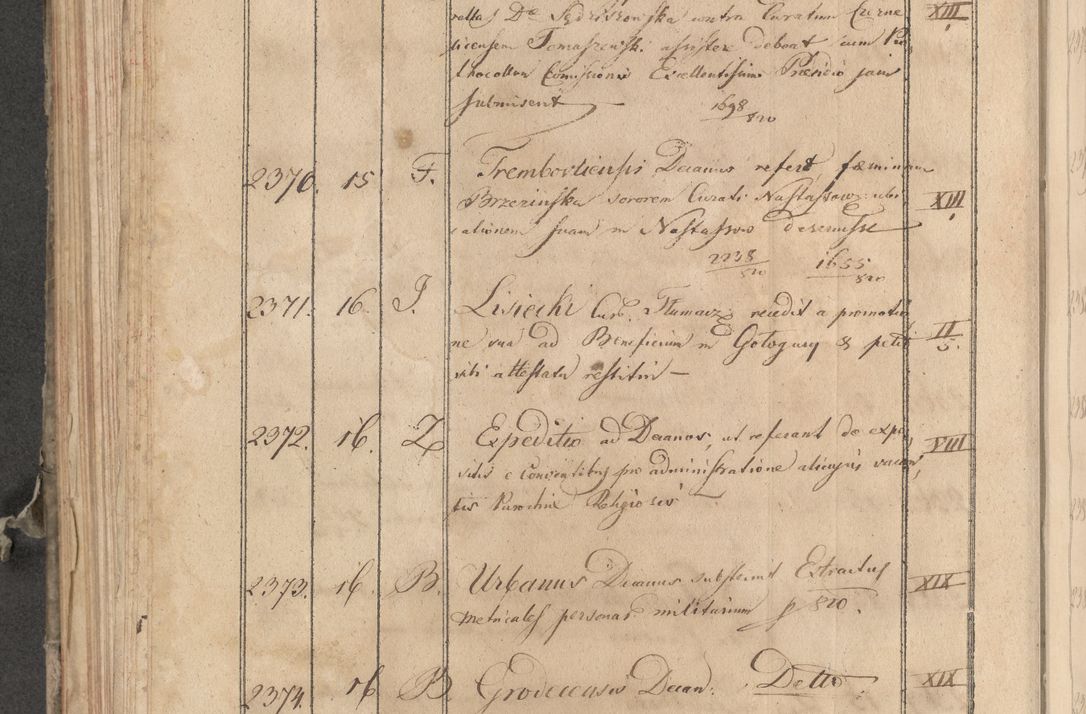 Dna Sędziszowska contra Curatum Czerne XIII
licensem Tomaszewski assistere debeat cum Pro
thocollon Comissionis Excellentissimo Praesidio jam
submiserit 1698/820
2370. 15 F. Trembovliensis Decanus refert, fæminam
Brzezinska sororem Curati Nastassow: ubi XIII
cationem suam in Nastassow deseruisse
2238/820 1655/820
2371. 16. J. Lisiecki Curb. Tlumacz recedit a promotio
ne sua ad Beneficium in Gologury & petit II/5.
sibi attestata restitui —
2372. 16. Z Expeditio ad Decanos, ut referant de expo
sitis e Conventibus pro administratione alicujus vacan VIII
tis Parochiae Religiosis —
2373. 16. B. Urbanus Decanus substernit Extractus XIX
metricales personar. militarium p 820.
2374. 16 B Grodecensis Decan: Detto XIX